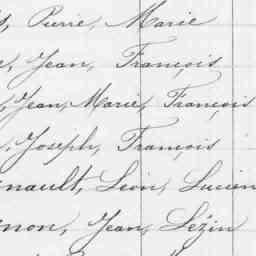 , Pierre, Marie
, Jean, François
, Jean, Marie, François
, Joseph, François
nault, Léon, Lucien
non, Jean, Lézin